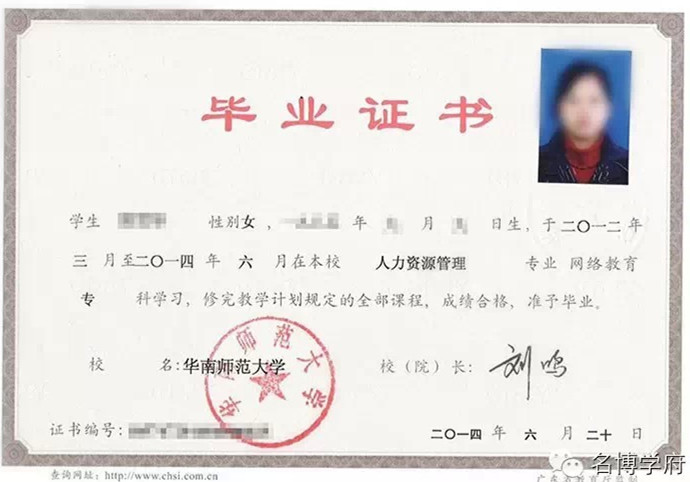 毕业证书
学生 性别女，一 年 月 日生，于二〇一二年
三 月至二〇一四 年 六 月在本校 人力资源管理 专业 网络教育
专 科学习，修完教学计划规定的全部课程，成绩合格，准予毕业。
校 名：华南师范大学 校（院）长：刘鸣
华南师范大学
证书编号： 二〇一四 年 六 月 二十 日
查询网址：http://www.chsi.com.cn 广东省教育厅监制
名博学府